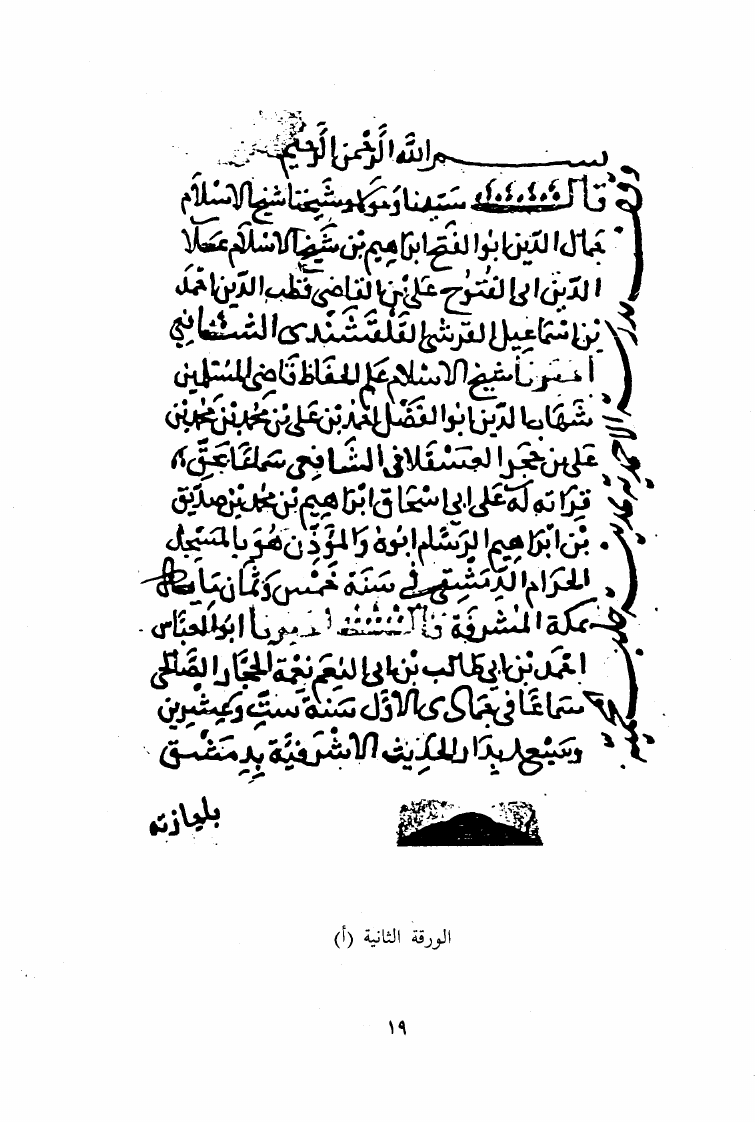 بسم الله الرحمن الرحيم
قال سيدنا ومولانا وشيخنا شيخ الاسلام
جمال الدين ابو الفتح ابراهيم بن شيخ الاسلام علا
الدين ابي الفتوح علي بن القاضي قطب الدين احمد
بن اسماعيل القرشي القلقشندي الشافعي
اخبرنا شيخ الاسلام علم الحفاظ قاضي المسلمين
شهاب الدين ابو الفضل احمد بن علي بن محمد بن محمد بن
علي بن حجر العسقلاني الشافعي سماعا بحق
قراته له على ابي اسحاق ابراهيم بن محمد بن صديق
بن ابراهيم الرسام ابوه والمؤذن هو بالمسجد
الحرام الدمشقي في سنة خمس وثمان مايه
بمكة المشرفة قال اخبرنا ابو العباس
احمد بن ابي طالب بن ابي النعم نعمة الحجار الصالحي
سماعا في جمادى الاول سنة ست وعشرين
وسبع بدار الحديث الاشرفية بدمشق
باجازته
وقف مدرسة الاحمدية بمدينة حلب المحمية
الورقة الثانية (أ)
١٩